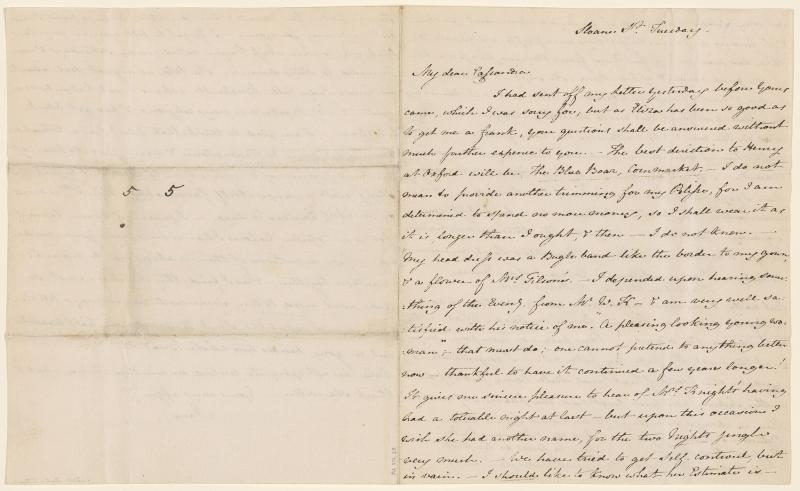 5 5
Sloane St. Tuesday.
My dear Cassandra
I had sent off my Letter yesterday before Yours
came, which I was sorry for; but as Eliza has been so good as
to get me a frank, your questions shall be answered without
much further expence to you. — The best direction to Henry
at Oxford will be, The Blue Boar, Cornmarket. — I do not
mean to provide another trimming for my Pelisse, for I am
determined to spend no more money, so I shall wear it as
it is longer than I ought, & then — I do not know. —
My head dress was a Bugle band like the border to my gown,
& a flower of Mrs Tilson's. — I depended upon hearing some:
:thing of the Eveng from Mr W. K — & am very well sa:
:tisfied with his notice of me. "A pleasing looking young wo:
:man"; — that must do; — one cannot pretend to anything better
now — thankful to have it continued a few years longer!
It gives me sincere pleasure to hear of Mrs Knight's having
had a tolerable night at last — but upon this occasion I
wish she had another name, for the two Nights jingle
very much. — We have tried to get Self-controul, but
in vain. — I should like to know what her Estimate is —